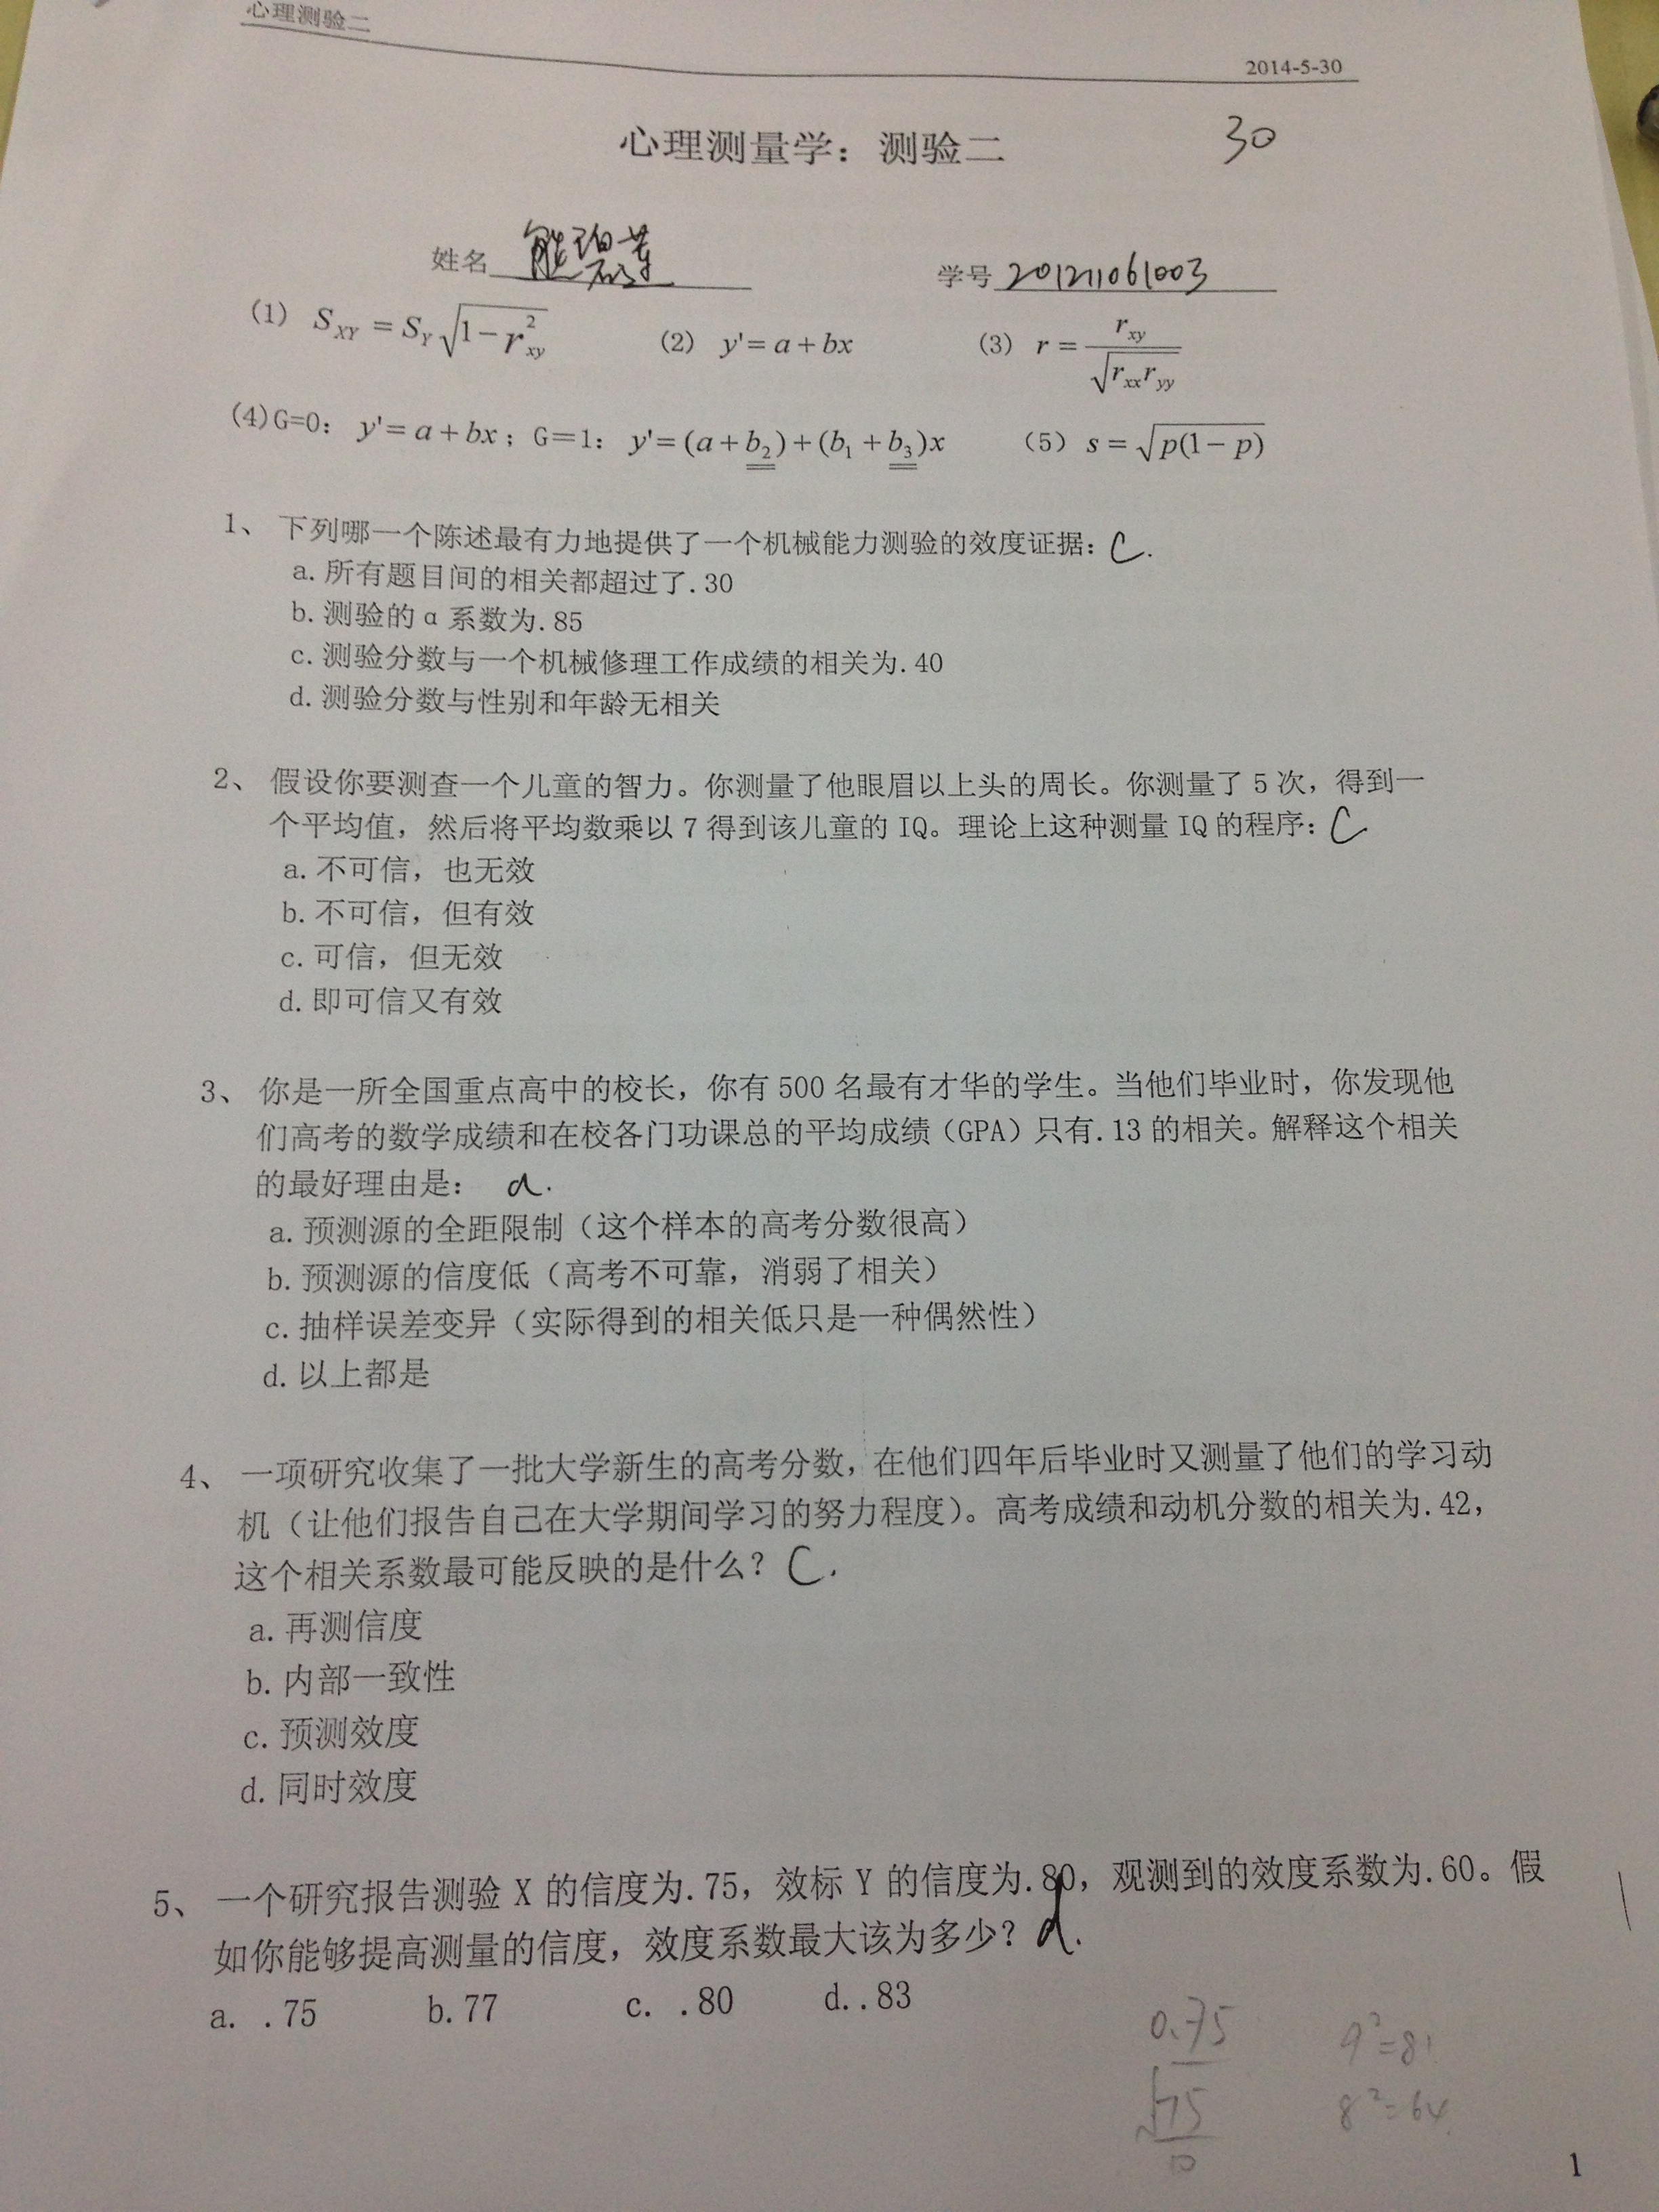 心理测验二
2014-5-30
心理测量学：测验二
30
姓名 熊碧
学号 201211061003
(1) S_XY = S_Y√(1-r²_xy) (2) y'= a + bx (3) r = r_xy/√(r_xx r_yy)
(4)G=0: y'= a + bx；G=1: y'= (a + b₂) + (b₁ + b₃)x (5) s = √(p(1- p))
1、 下列哪一个陈述最有力地提供了一个机械能力测验的效度证据：C.
a. 所有题目间的相关都超过了.30
b. 测验的α系数为.85
c. 测验分数与一个机械修理工作成绩的相关为.40
d. 测验分数与性别和年龄无相关
2、 假设你要测查一个儿童的智力。你测量了他眼眉以上头的周长。你测量了5次，得到一
个平均值，然后将平均数乘以7得到该儿童的IQ。理论上这种测量IQ的程序：C
a. 不可信，也无效
b. 不可信，但有效
c. 可信，但无效
d. 即可信又有效
3、 你是一所全国重点高中的校长，你有500名最有才华的学生。当他们毕业时，你发现他
们高考的数学成绩和在校各门功课总的平均成绩（GPA）只有.13的相关。解释这个相关
的最好理由是： a.
a. 预测源的全距限制（这个样本的高考分数很高）
b. 预测源的信度低（高考不可靠，消弱了相关）
c. 抽样误差变异（实际得到的相关低只是一种偶然性）
d. 以上都是
4、 一项研究收集了一批大学新生的高考分数，在他们四年后毕业时又测量了他们的学习动
机（让他们报告自己在大学期间学习的努力程度）。高考成绩和动机分数的相关为.42，
这个相关系数最可能反映的是什么？ C.
a. 再测信度
b. 内部一致性
c. 预测效度
d. 同时效度
5、 一个研究报告测验X的信度为.75，效标Y的信度为.80，观测到的效度系数为.60。假
如你能够提高测量的信度，效度系数最大该为多少？ d.
a. .75 b.77 c. .80 d..83
0.75
√75
10
9²=81
8²=64
1